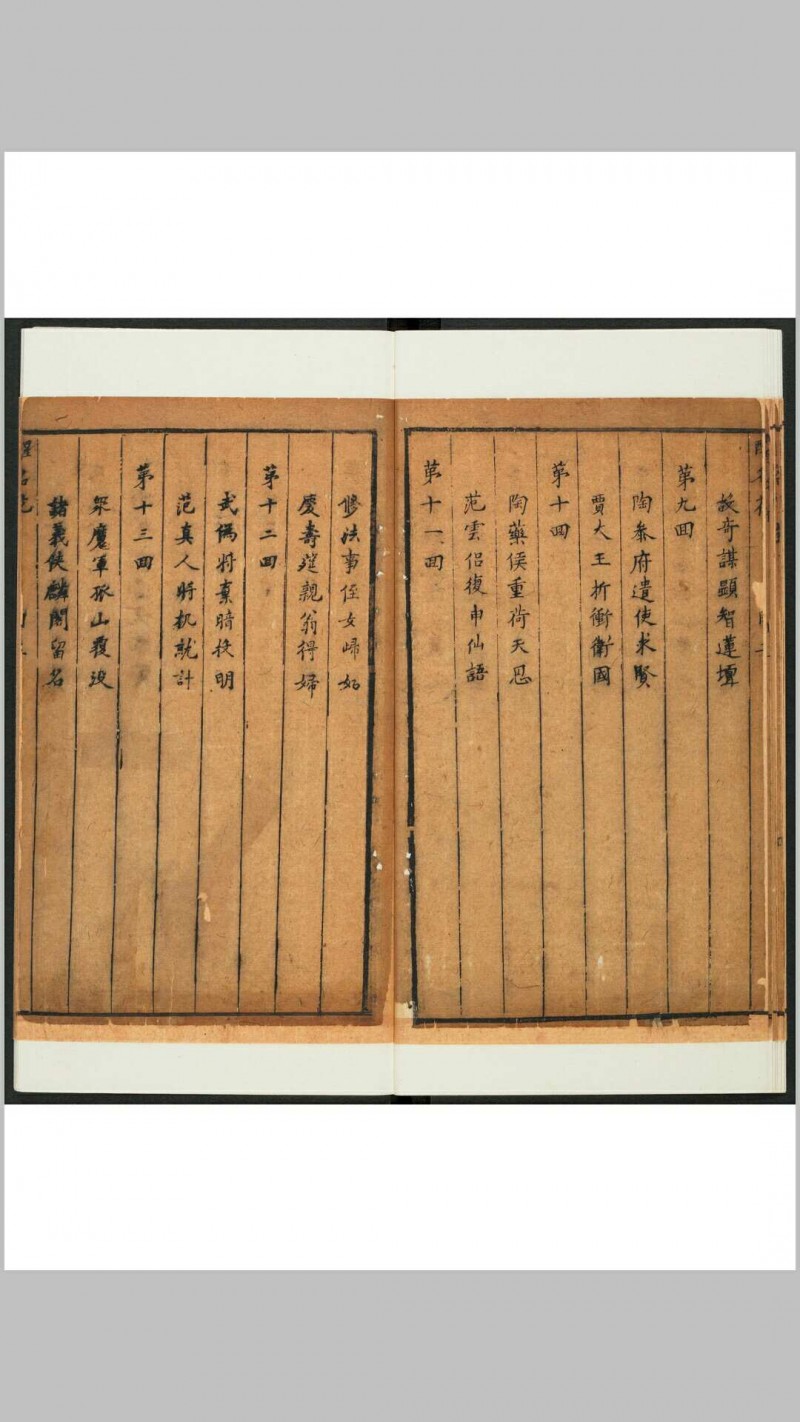 妖奇謀顯智蓮壇
第九回
陶參府遣使求賢
賈大王折衝衛國
第十回
陶藥侯重荷天恩
范雲侣復申仙語
第十一回
修法事侄女歸妙
慶壽筵親翁得婦
第十二回
武偽将棄暗投明
范真人将机就計
第十三回
眾魔軍孤山覆没
諸義俠麟閣留名